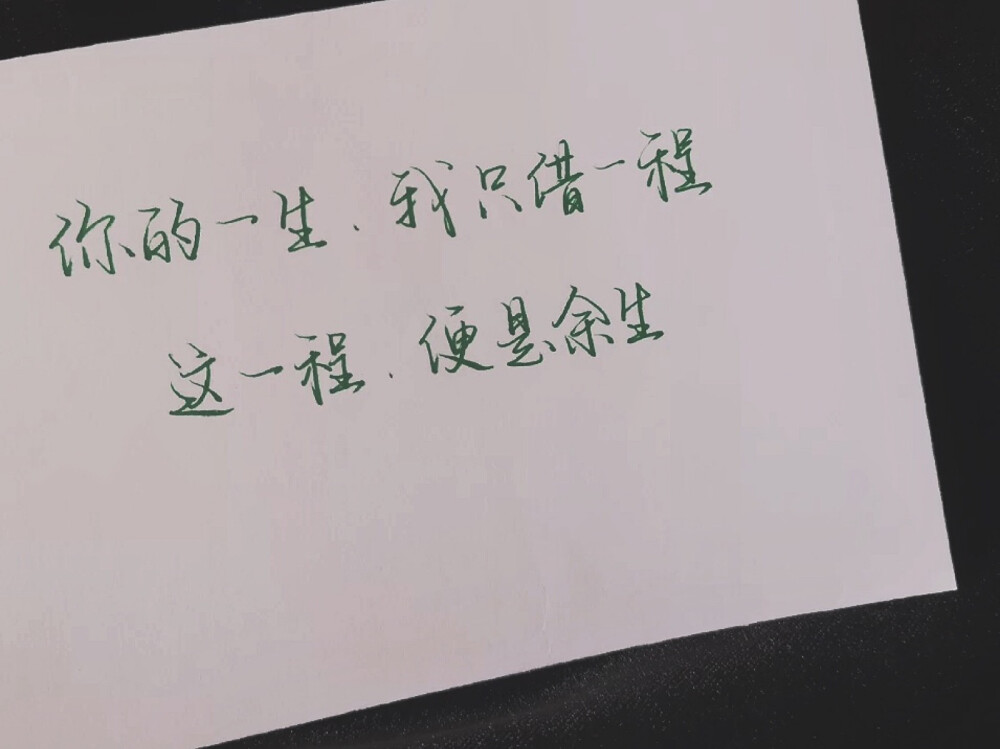 你的一生,我只借一程
这一程,便是余生